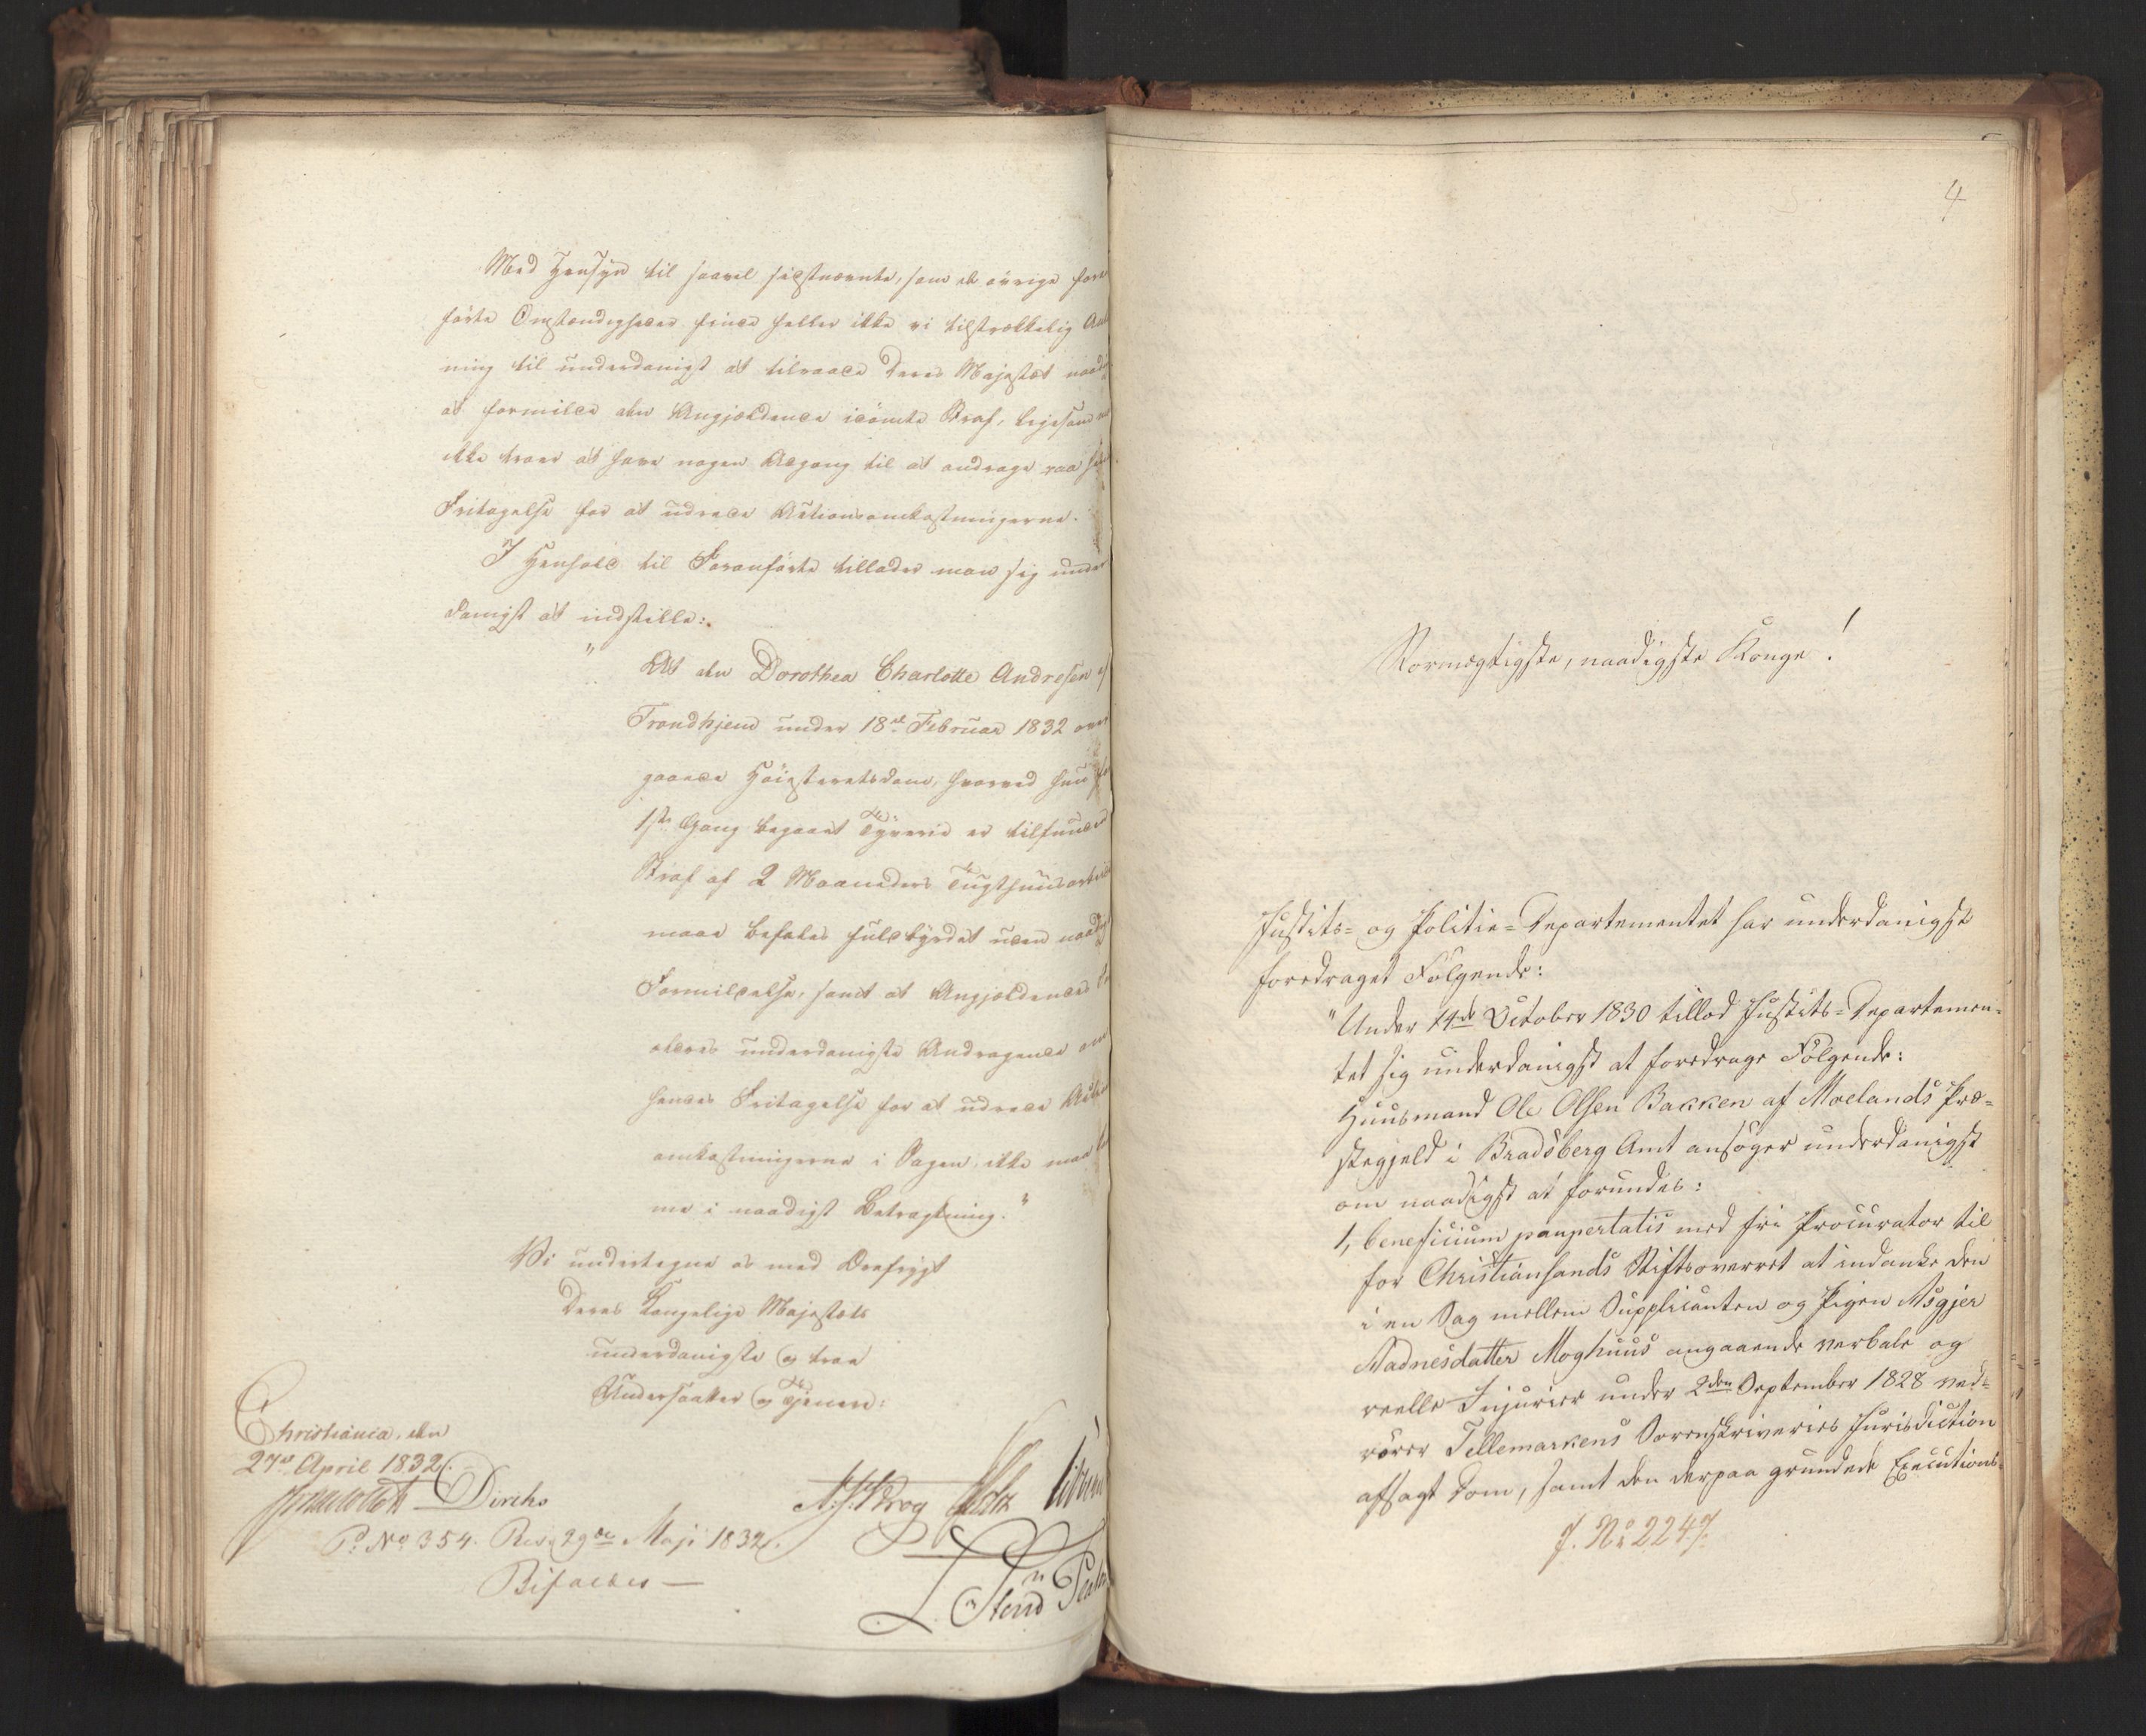 Med Hensyn til saavel sidstnævnte, som de øvrige foran
førte Omstændigheder finde heller ikke vi tilstrækkelig An
ning til underdanigst at tilraade Deres Majestæt naadigst
at formilde den Angjældende idømte Straf, ligesom vi
ikke troer at have nogen Adgang til at andrage paa hendes
Fritagelse for at udrede Actionsomkostningerne.
I Henhold til Foranførte tillader man sig under
danigst at indstille:
"At den Dorothea Charlotte Andresen af
Trondhjem under 18de Februar 1832 over
gaaede Høiesteretsdom, hvorved hun for
1ste Gang begaaet Tyverie er tilfunden
Straf af 2 Maaneders Tugthuusarbeide
maae befales fuldbyrdet uden naadigst
Formildelse, samt at Angjældendes
underdanigste Andragende om
hendes Fritagelse for at udrede Actions
omkostningerne i Sagen ikke maa kom
me i naadigst Betragtning."
Vi undertegne os med Ærefrygt
Deres Kongelige Majestæts
underdanigste og troe
Undersaatter og Tjenere:
Christiania, den
27de April 1832.
Diriks
P. No 354. Res. 29de Maji 1832.
Bifaldes —
4
Stormægtigste, naadigste Konge!
Justits- og Politie-Departementet har underdanigst
foredraget Følgende:
"Under 14de October 1830 tillod Justits-Departemen-
tet sig underdanigst at foredrage Følgende:
Huusmand Ole Olsen Bakken af Moelands Præ-
stegjeld i Bradsberg Amt ansøger underdanigst
om naadigst at forundes:
1, beneficium paupertatis med fri Procurator til
for Christiansands Stiftsoverret at indanke den
i en Sag mellem Supplicanten og Pigen Asgjer
Aadnesdatter Moghuus angaaende verbale og
reelle Injurier under 2den September 1828 ved
vører Tellemarkens Sorenskriveries Jurisdiction
afsagt Dom, samt den derpaa grundede Executions-
J. No 2247.